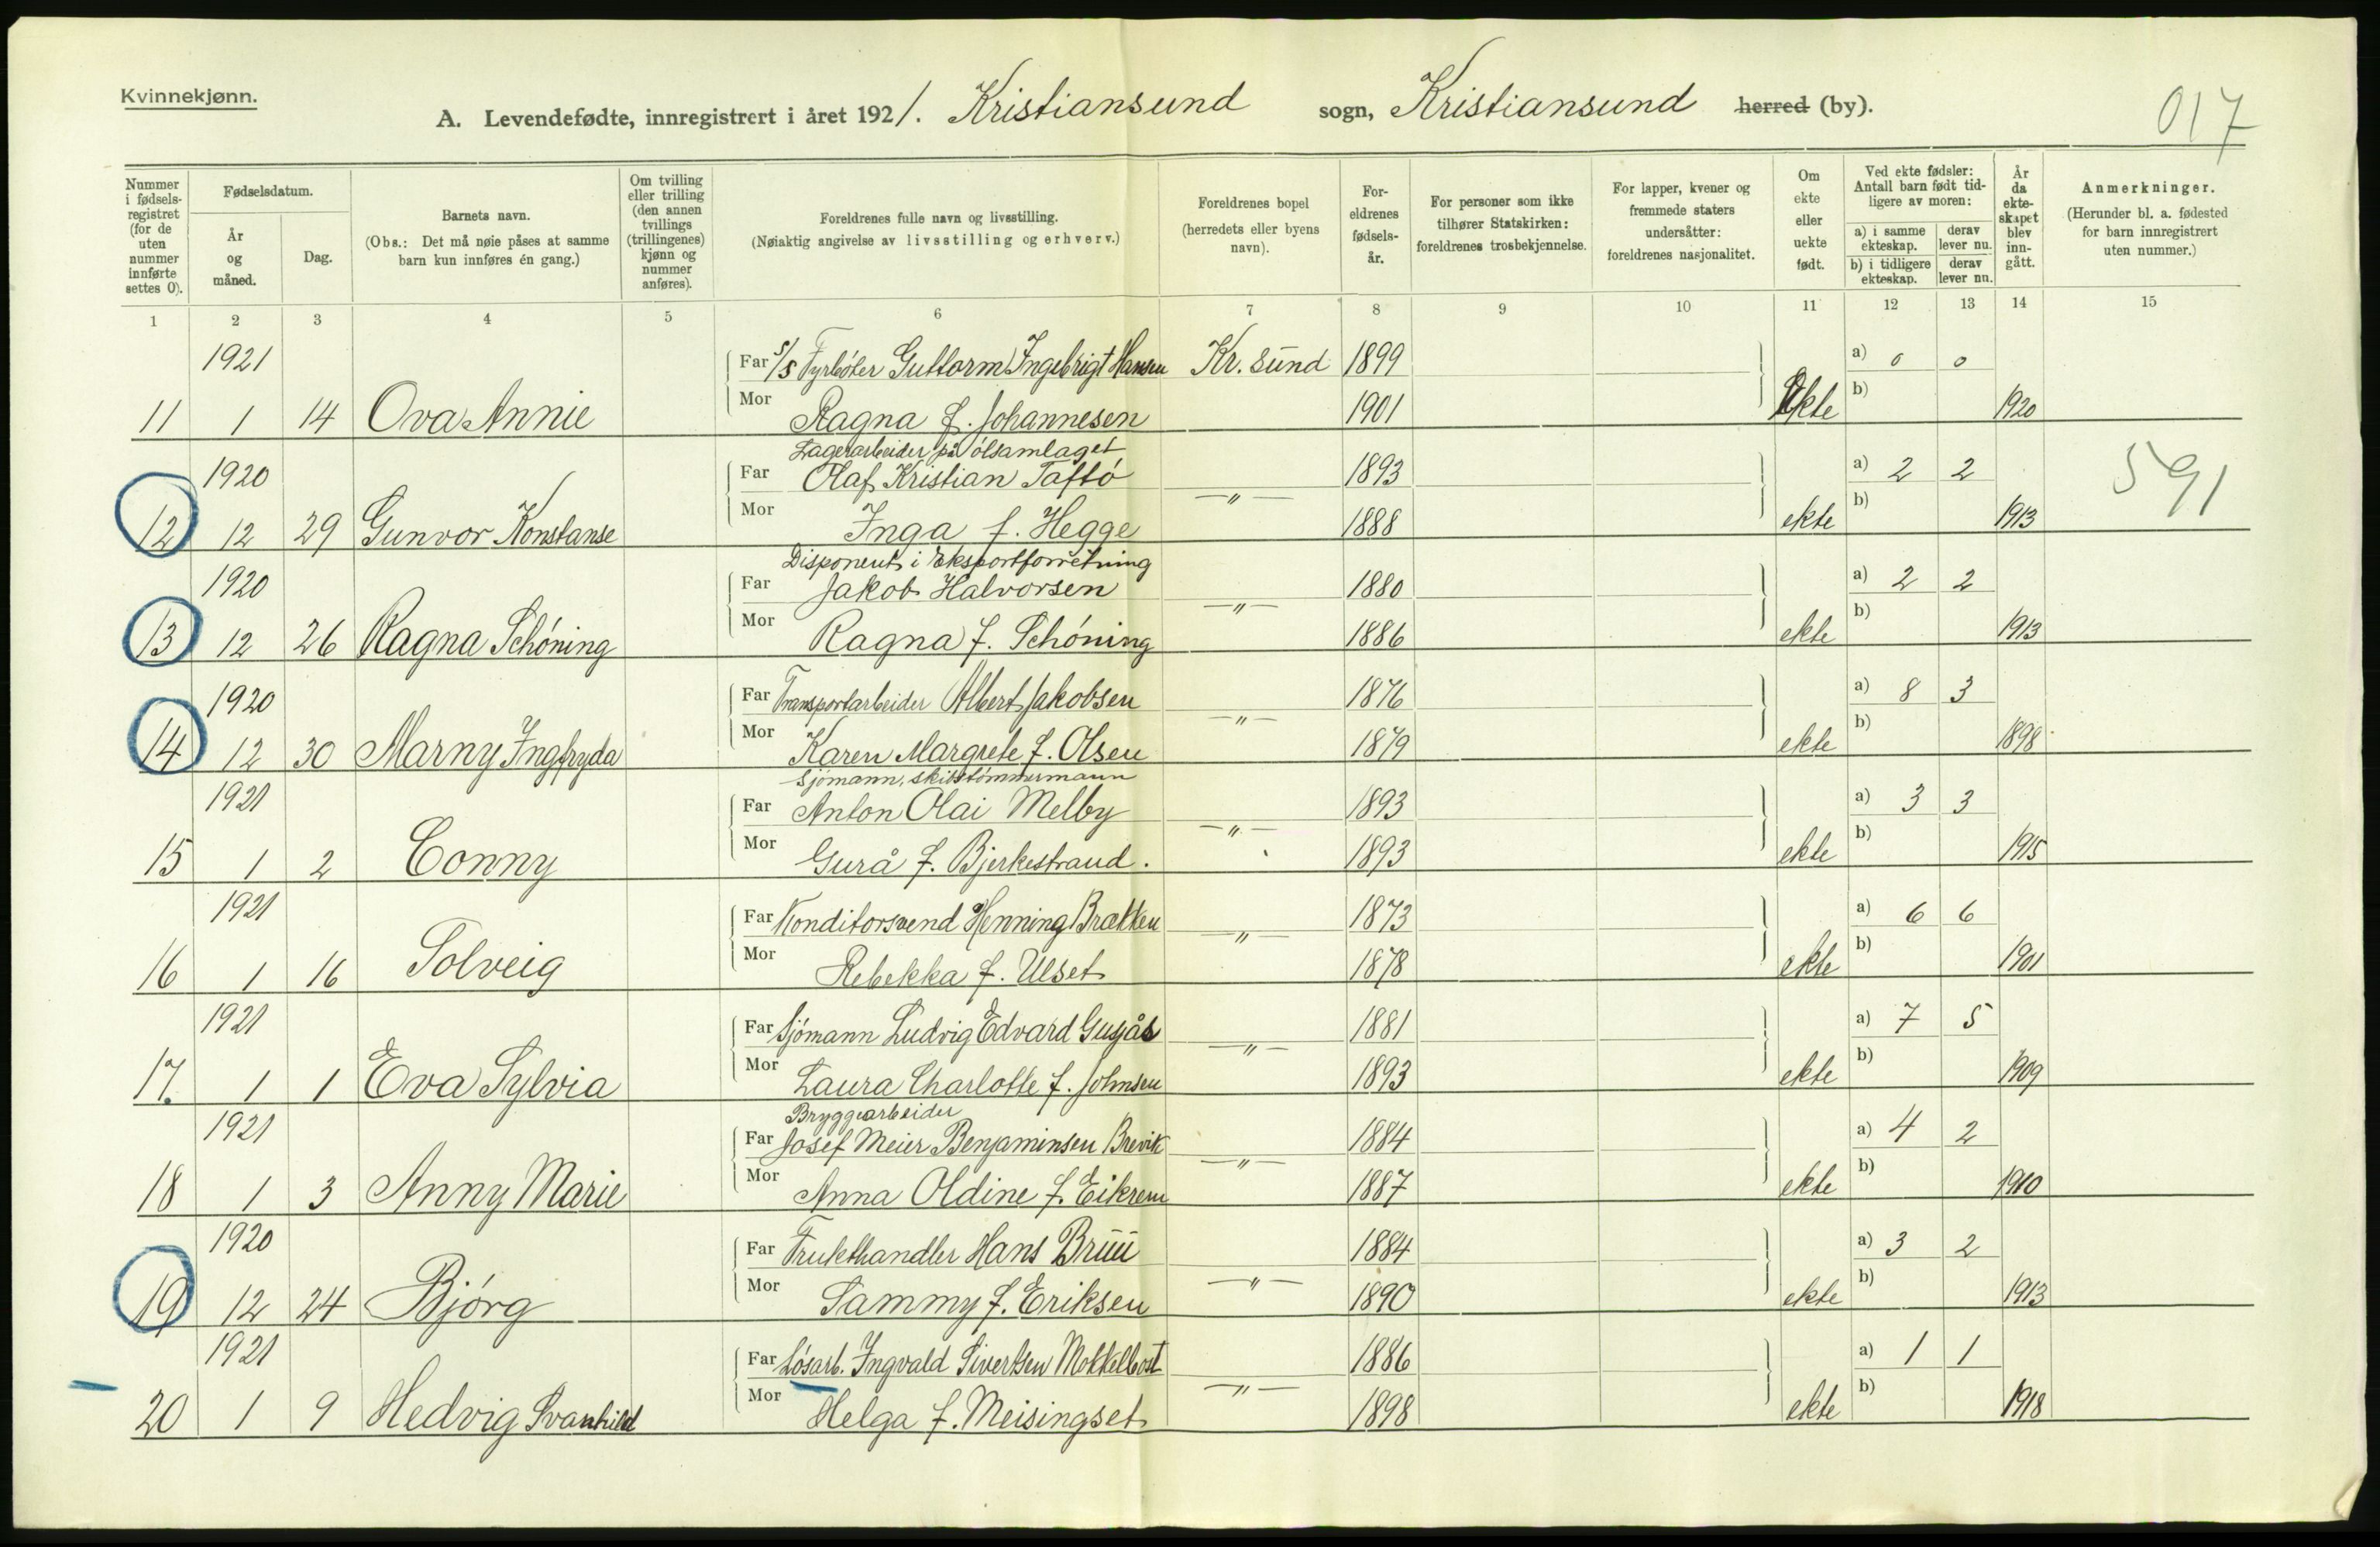 Kvinnekjønn.
A. Levendefødte, innregistrert i året 1921. Kristiansund sogn, Kristiansund herred (by).
017
Nummer i fødselsregistret (for de uten nummer innførte settes 0).
Fødselsdatum.
År og måned.
Dag.
Barnets navn.
(Obs.: Det må nøie påses at samme barn kun innføres én gang.)
Om tvilling eller trilling (den annen tvillings (trillingenes) kjønn og nummer anføres).
Foreldrenes fulle navn og livsstilling.
(Nøiaktig angivelse av livsstilling og erhverv.)
Foreldrenes bopel (herredets eller byens navn).
Foreldrenes fødselsår.
For personer som ikke tilhører Statskirken: foreldrenes trosbekjennelse.
For lapper, kvener og fremmede staters undersåtter: foreldrenes nasjonalitet.
Om ekte eller uekte født.
Ved ekte fødsler: Antall barn født tidligere av moren:
a) i samme ekteskap. derav lever nu.
b) i tidligere ekteskap. derav lever nu.
År da ekteskapet blev inngått.
Anmerkninger.
(Herunder bl. a. fødested for barn innregistrert uten nummer.)
1 2 3 4 5 6 7 8 9 10 11 12 13 14 15
1921 Far s/s Fyrbøter Guttorm Ingebrigt Hansen Kr. sund 1899 a) 0 0
11 1 14 Ova Annie Mor Ragna f. Johannesen 1901 Ekte b) 1920
Lagerarbeider på ölsamlaget
1920 Far Olaf Kristian Taftö 1893 a) 2 2 591
12 12 29 Gunvor Konstanse Mor Inga f. Hegge -"- 1888 ekte b) 1913
Disponent i Eksportforretning
1920 Far Jakob Halvorsen 1880 a) 2 2
13 12 26 Ragna Schöning Mor Ragna f. Schöning -"- 1886 ekte b) 1913
1920 Far Transportarbeider Albert Jakobsen 1876 a) 8 3
14 12 30 Marny Ingfryda Mor Karen Margrete f. Olsen -"- 1879 ekte b) 1898
Sjömann, skibstömmermann
1921 Far Anton Olai Melby 1893 a) 3 3
15 1 2 Conny Mor Gurå f. Bjerkestrand. -"- 1893 ekte b) 1915
1921 Far Konditorsvend Henning Brækken 1873 a) 6 6
16 1 16 Solveig Mor Rebekka f. Ulset -"- 1878 ekte b) 1901
1921 Far Sjömann Ludvig Edvard Gusjås 1881 a) 7 5
17. 1 1 Eva Sylvia Mor Laura Charlotte f. Johnsen -"- 1893 ekte b) 1909
Bryggearbeider
1921 Far Josef Meier Benjaminsen Brevik 1884 a) 4 2
18 1 3 Anny Marie Mor Anna Oldine f. Eikrem -"- 1887 ekte b) 1910
1920 Far Frukthandler Hans Bruu 1884 a) 3 2
19 12 24 Bjórg Mor Sammy f. Eriksen -"- 1890 ekte b) 1913
1921 Far Lösarb. Ingvald Sivertsen Mekkelbost 1886 a) 1 1
20 1 9 Hedvig Svanhild Mor Helga f. Meisingset -"- 1898 ekte b) 1918